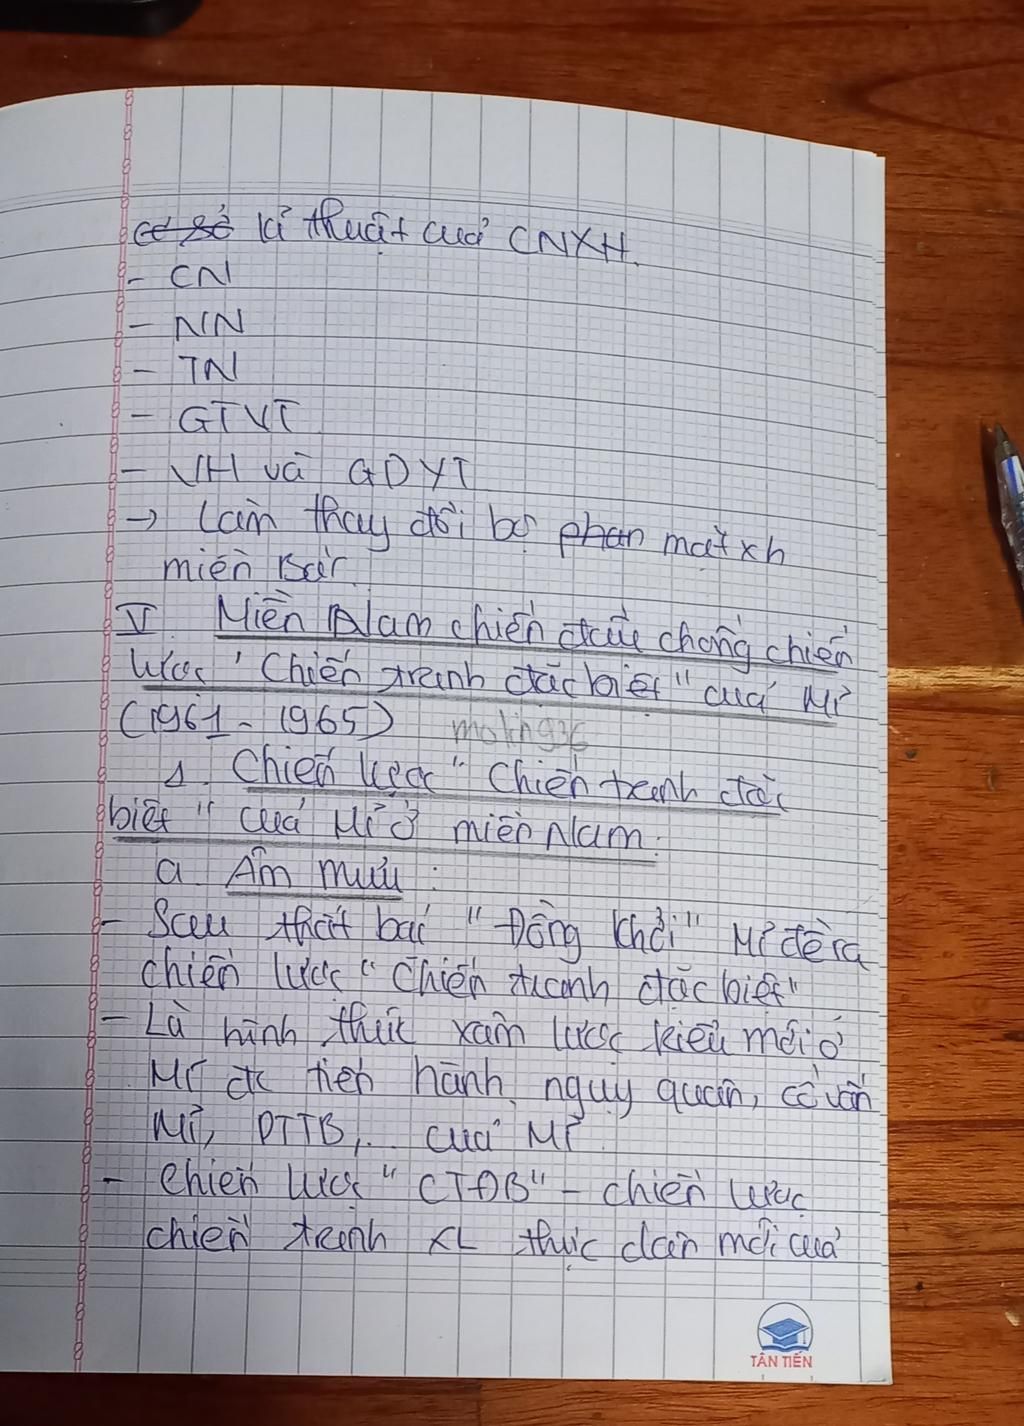 cơ sở kĩ thuật của CNXH.
- CN
- NN
- TN
- GTVT
- VH và GDYT
-> Làm thay đổi bộ phan mặt xh
miền Bắc.
V. Miền Nam chiến đấu chống chiến
lược "Chiến tranh đặc biệt" của Mĩ
(1961 - 1965)
1. Chiến lược "Chiến tranh đặc
biệt" của Mĩ ở miền Nam:
a. Âm mưu:
- Sau thất bại "Đồng khởi" Mĩ đề ra
chiến lược "Chiến tranh đặc biệt"
- Là hình thức xâm lược kiểu mới ở
Mĩ đc tiến hành, ngụy quân, cố vấn
Mĩ, PTTB,... của Mĩ.
- Chiến lược "CTĐB" - chiến lược
chiến tranh XL thực dân mới của
TÂN TIẾN